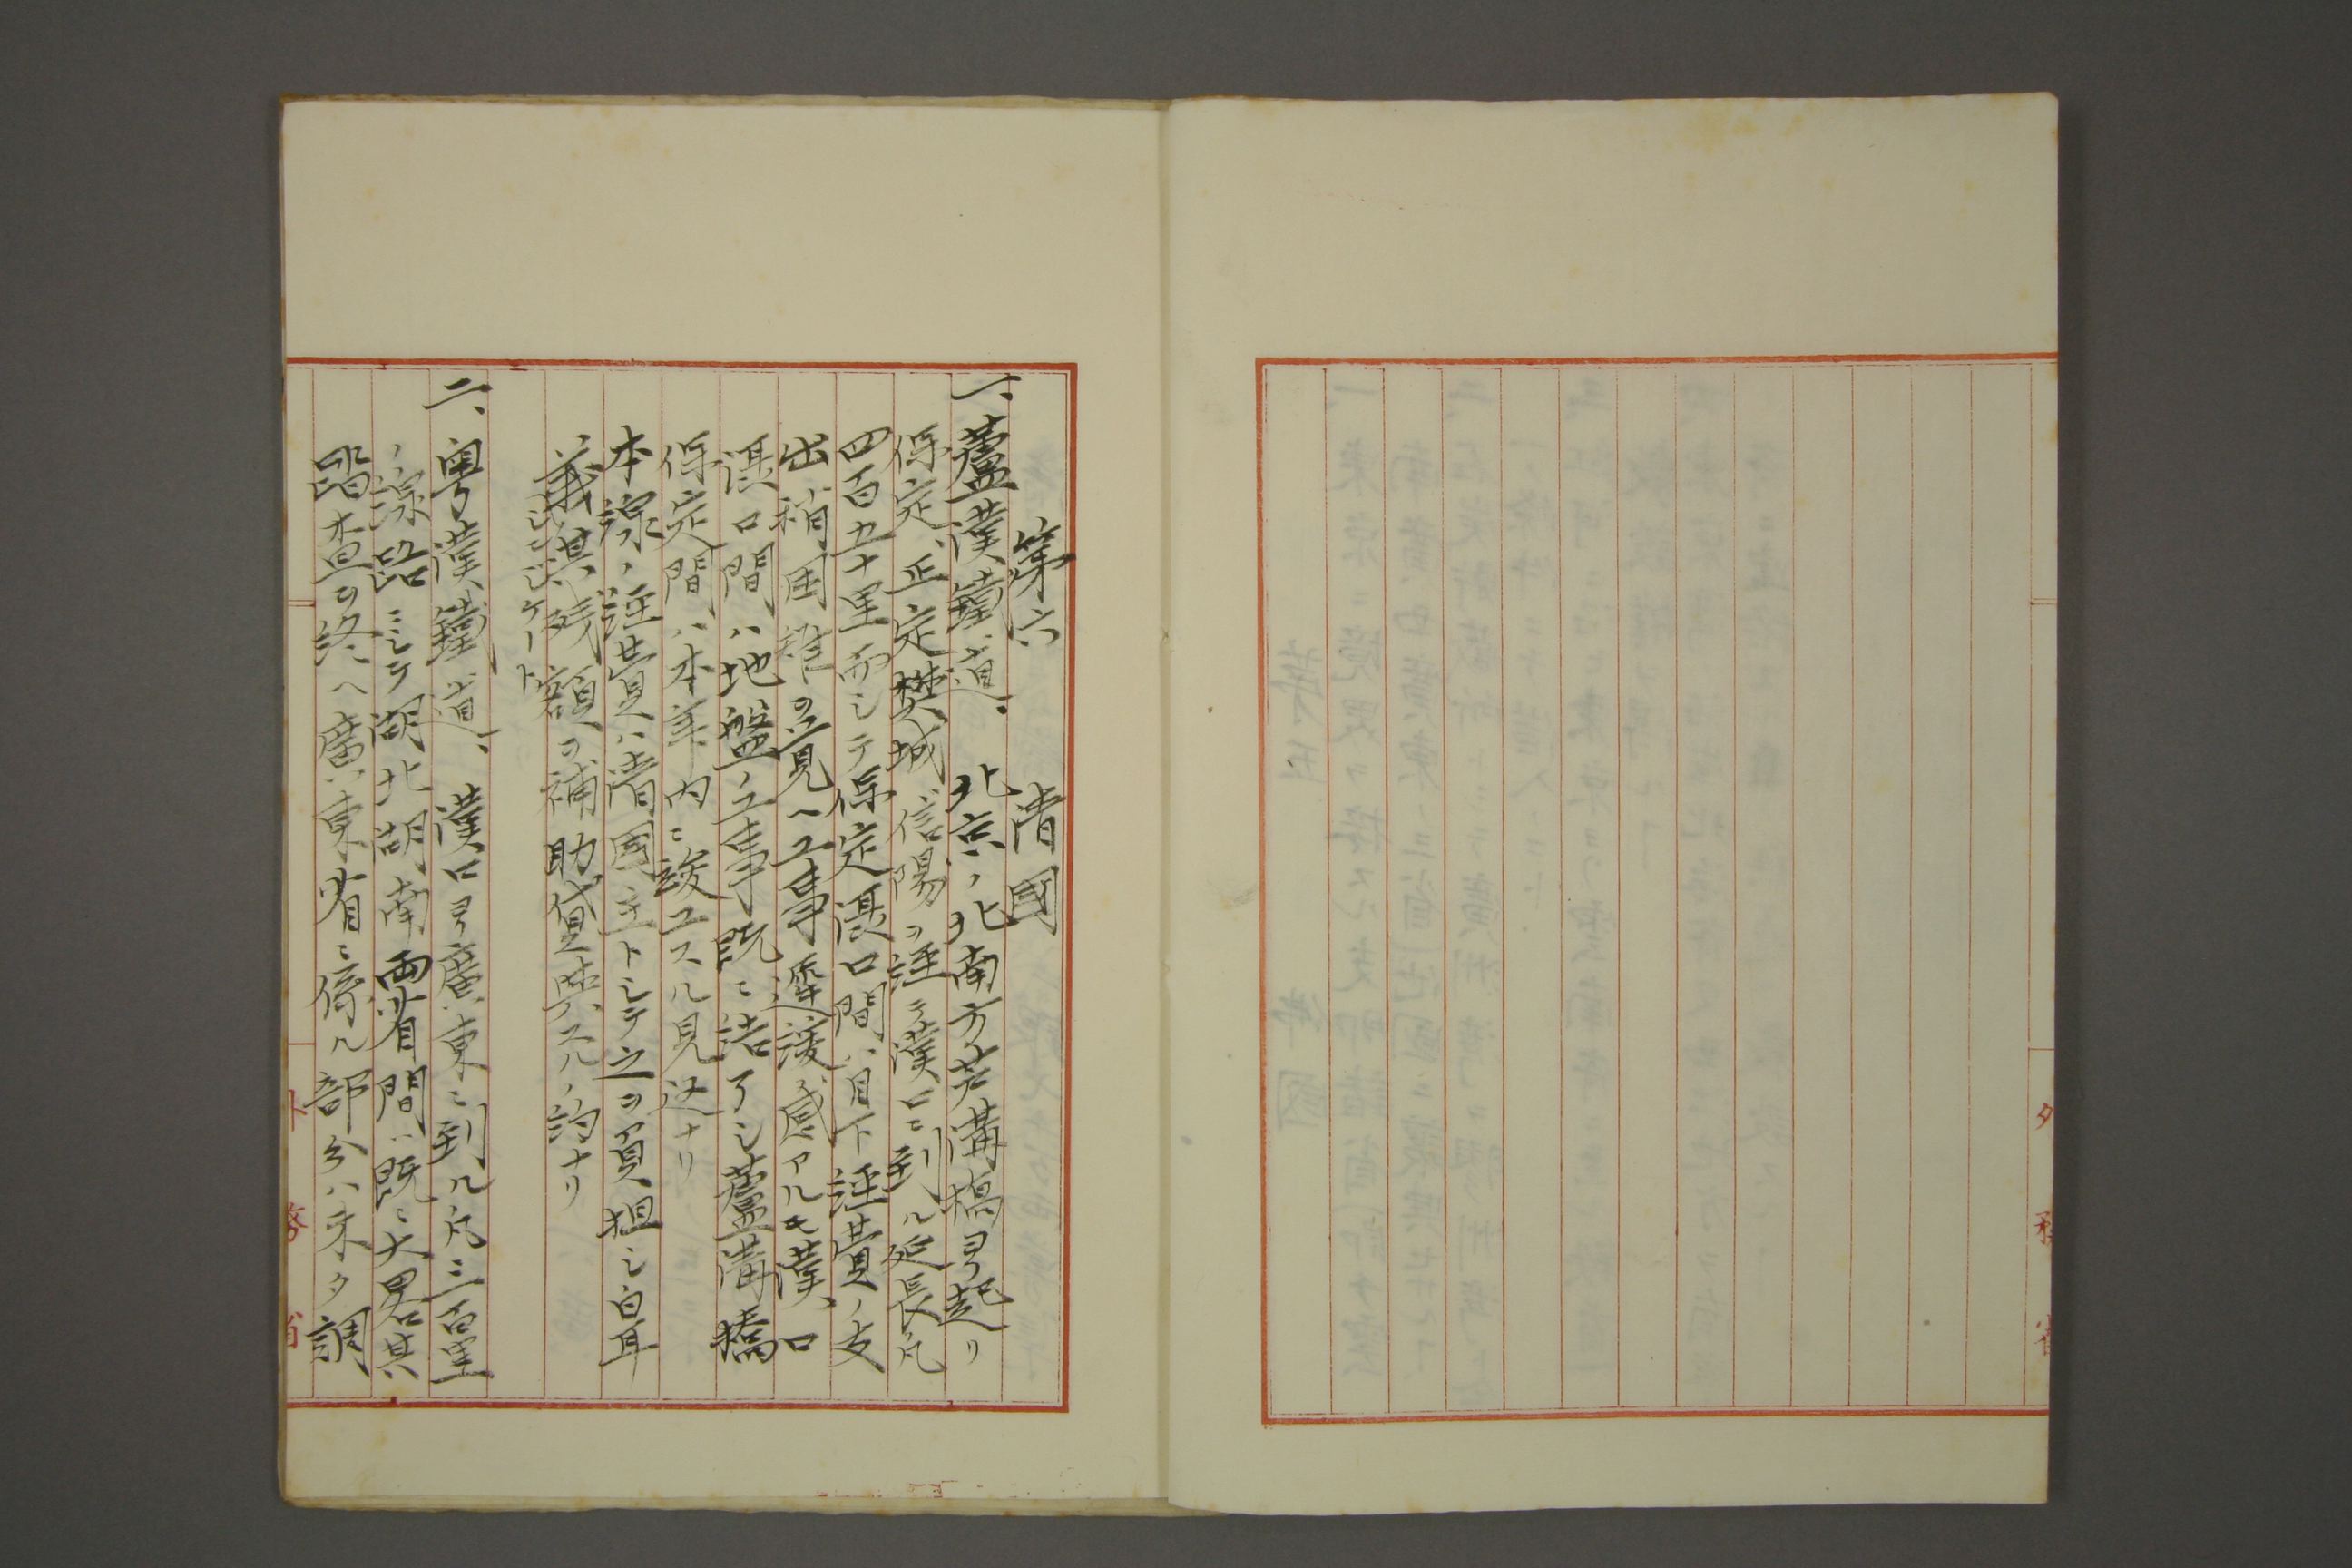 第六　清國
一、蘆漢鐵道、　北京ノ北南方芦溝橋ヨリ起リ
保定、正定樊城信陽ヲ経テ漢口ニ到ル延長凡
四百五十里而シテ保定漢口間ハ目下経費ノ支
出稍困難ヲ覚ヘ工事遅緩ノ感アルモ漢口
漢口間ハ地盤ノ工事既ニ結了シ蘆溝橋
保定間ハ本年内ニ竣工スル見込ナリ
本線ノ経費ハ清國主トシテ之ヲ負担シ白耳
義其残額ヲ補助貸与スルノ約ナリ
シンヂケートト
二、粤漢鐵道、　漢口ヨリ廣東ニ到ル凡三百里
ノ線路ニシテ湖北湖南両省間ハ既ニ大畧其
踏査ヲ終ヘ廣東省ニ係ル部分ハ未タ調
外務省